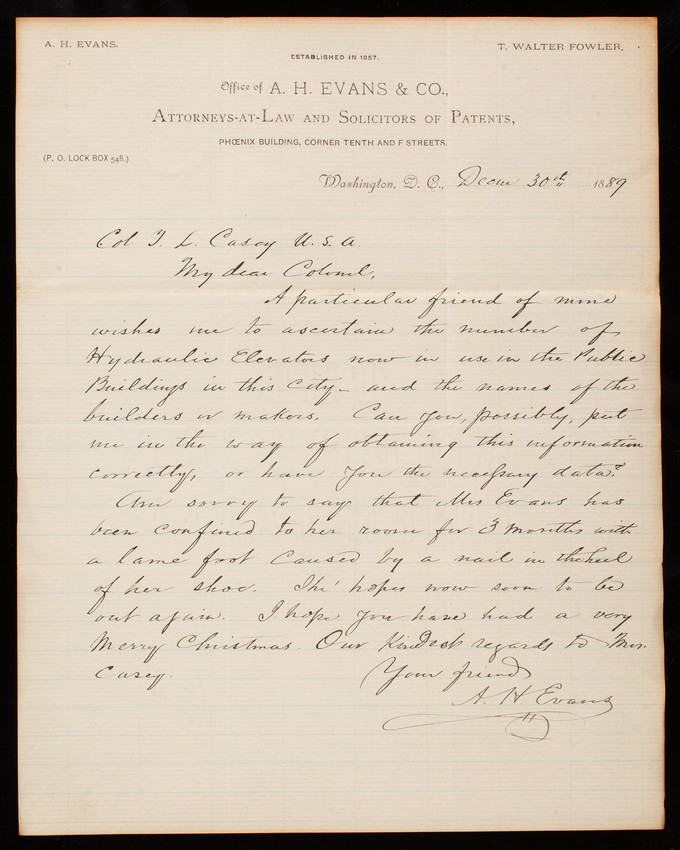 A. H. EVANS. T. WALTER FOWLER.
ESTABLISHED IN 1857.
Office of A. H. EVANS & CO.,
ATTORNEYS-AT-LAW AND SOLICITORS OF PATENTS,
PHŒNIX BUILDING, CORNER TENTH AND F STREETS.
(P. O. LOCK BOX 548.)
Washington, D. C., Decem 30th 1889
Col T. L. Casey U.S.A.
My dear Colonel,
A particular friend of mine
wishes me to ascertain the number of
Hydraulic Elevators now in use in the Public
Buildings in this City – and the names of the
builders or makers. Can you, possibly, put
me in the way of obtaining this information
correctly, or have you the necessary data?
Am sorry to say that Mrs Evans has
been confined to her room for 3 months with
a lame foot caused by a nail in the heel
of her shoe. She hopes now soon to be
out again. I hope you have had a very
Merry Christmas. Our Kindest regards to Mrs.
Casey.
Your friend
A. H. Evans